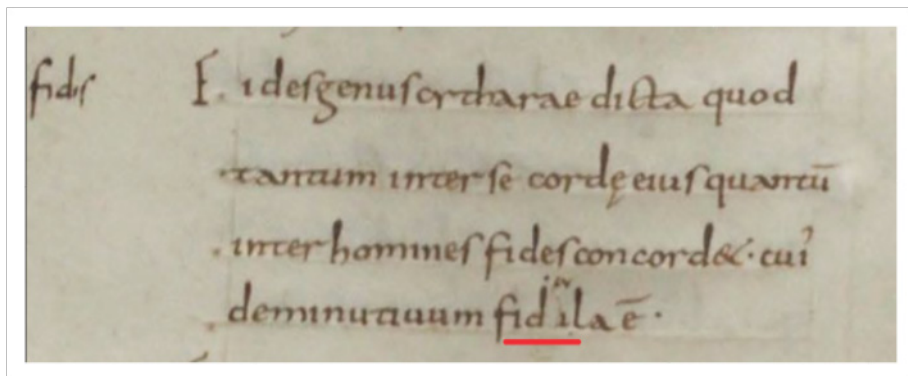 fidis F. ides genus citharae dicta quod
tantum inter se cordę eius quantū
inter homines fides concord&· cui'
deminutiuum fidila ē·